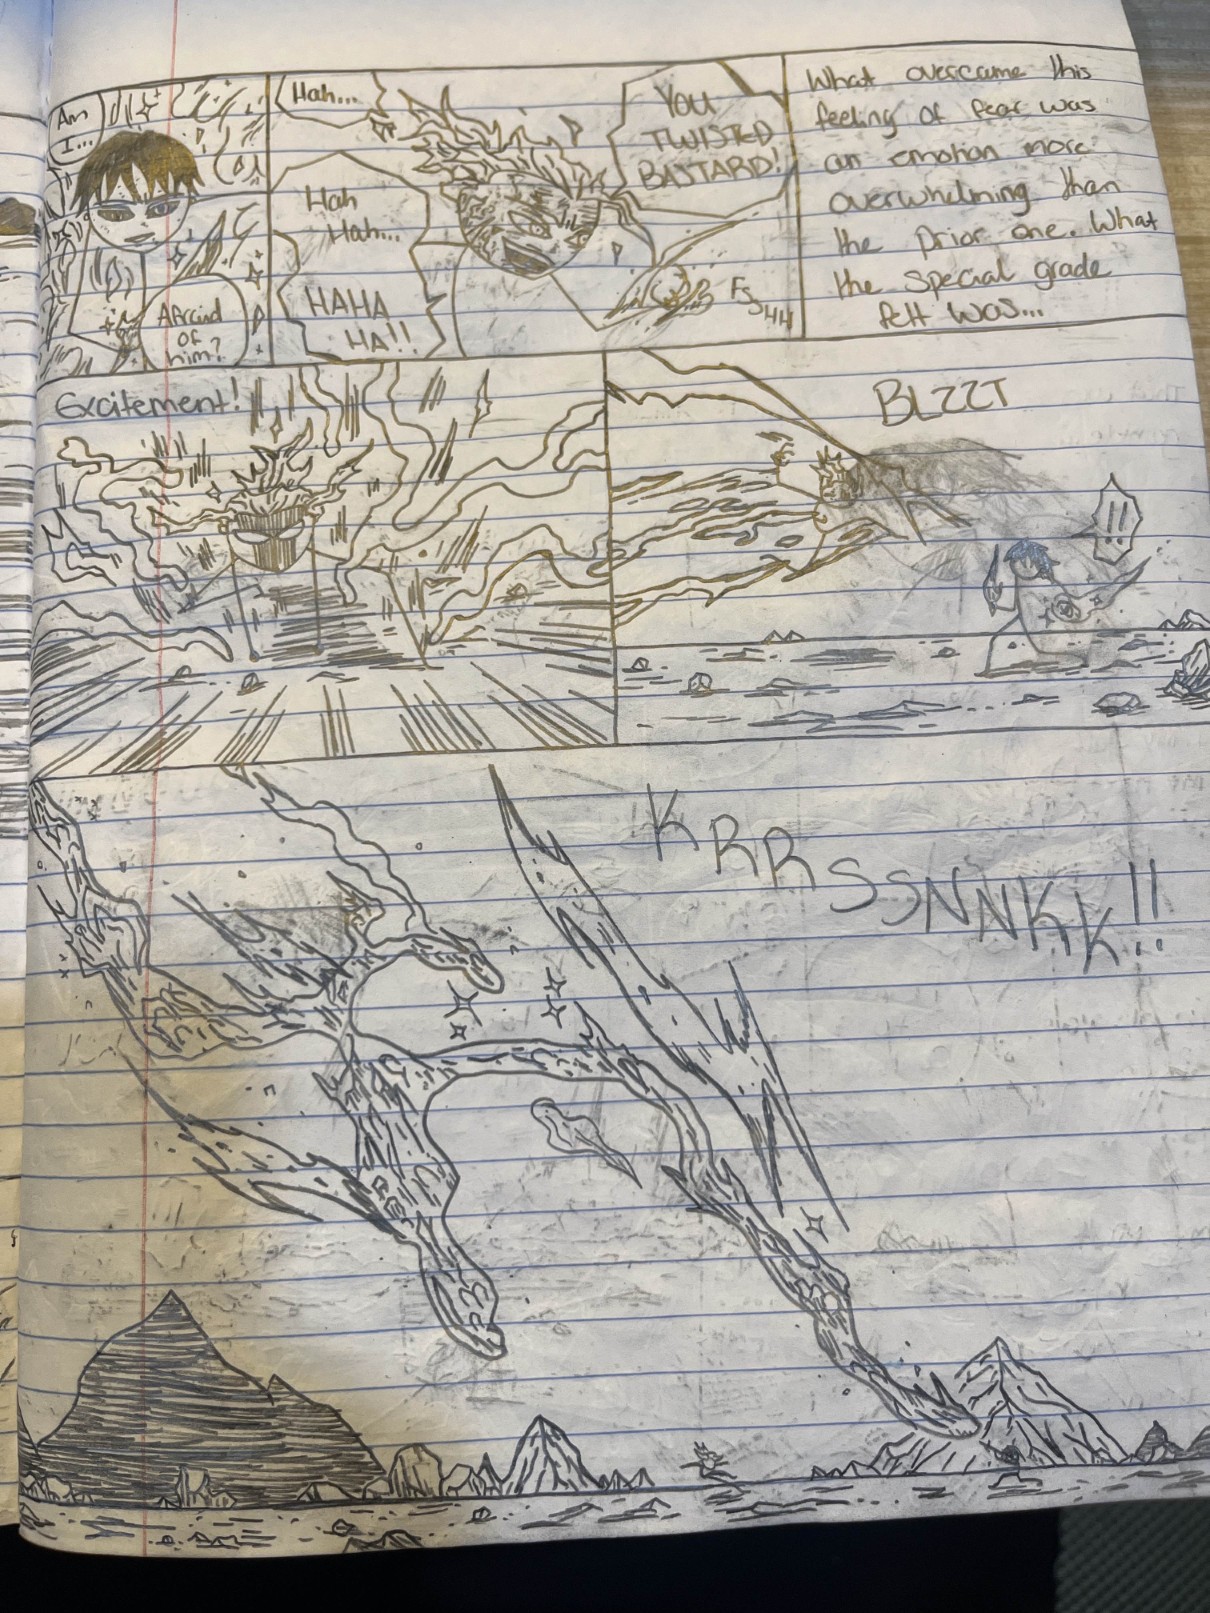 Am
I...
Afraid
of
him?
Hah...
Hah
Hah...
HAHA
HA!!
YOU
TWISTED
BASTARD!
FSSHH
What overcame this
feeling of fear was
an emotion more
overwhelming than
the prior one. What
the special grade
felt was...
Excitement!
BLZZT
!!
KRRSSNNKK!!